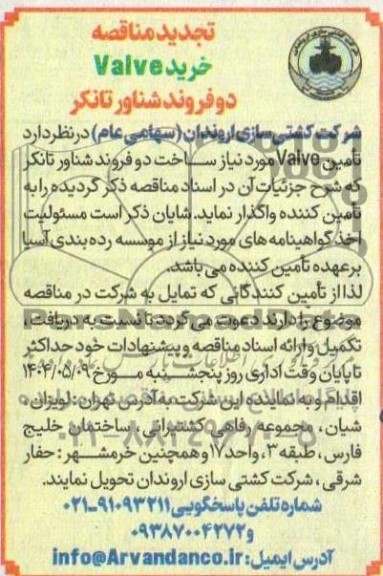 تجدید مناقصه
خرید Valve
دو فروند شناور تانکر
شرکت کشتی سازی اروندان (سهامی عام) در نظر دارد
تأمین Valve مورد نیاز ساخت دو فروند شناور تانکر
که شرح جزئیات آن در اسناد مناقصه ذکر گردیده را به
تأمین کننده واگذار نماید. شایان ذکر است مسئولیت
اخذ گواهینامه های مورد نیاز از موسسه رده بندی آسیا
بر عهده تأمین کننده می باشد.
لذا از تأمین کنندگانی که تمایل به شرکت در مناقصه
موضوع را دارند دعوت می گردد تا نسبت به دریافت،
تکمیل و ارائه اسناد مناقصه و پیشنهادات خود حداکثر
تا پایان وقت اداری روز پنجشنبه مورخ ۱۴۰۴/۰۵/۰۹
اقدام و به نماینده این شرکت به آدرس تهران: لویزان،
شیان، مجموعه رفاهی کشتیرانی، ساختمان خلیج
فارس، طبقه ۳، واحد ۱۷ و همچنین خرمشهر: حفار
شرقی، شرکت کشتی سازی اروندان تحویل نمایند.
شماره تلفن پاسخگویی ۹۱۰۹۳۲۱۱-۰۲۱
و ۰۹۳۸۷۰۰۴۲۷۲
آدرس ایمیل: info@Arvandanco.ir